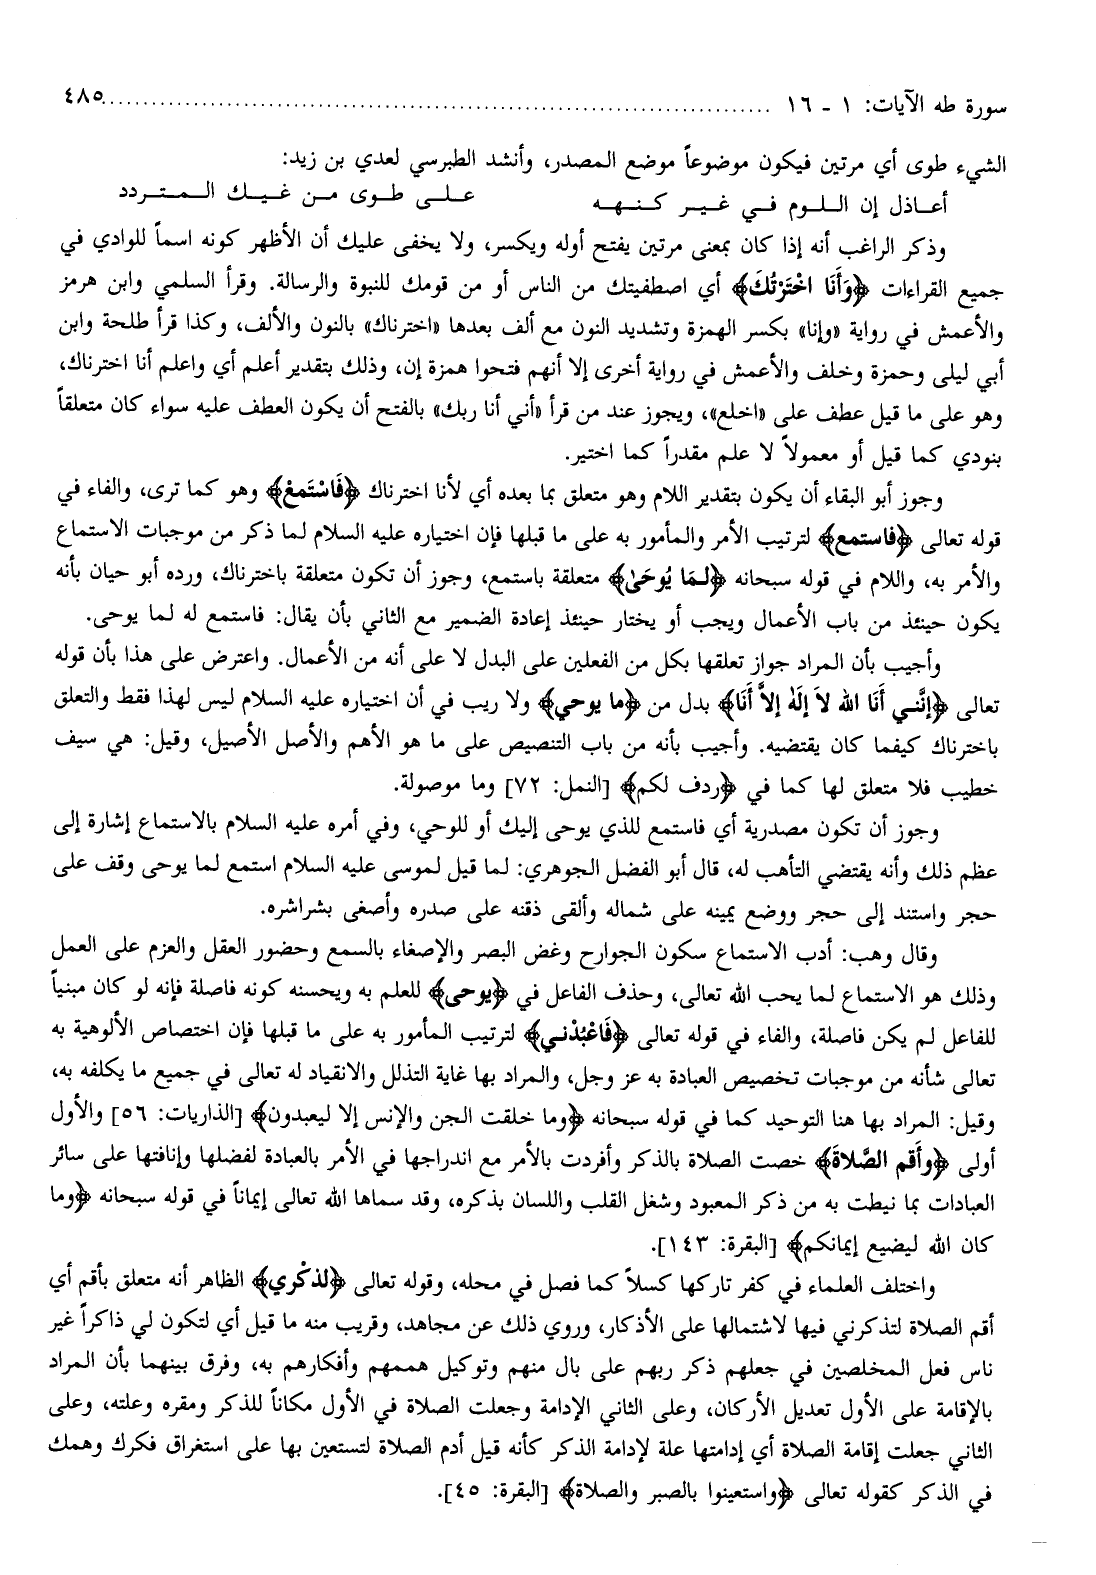 سورة طه الآيات: ١ - ١٦ ........................................................................ ٤٨٥
الشيء طوى أي مرتين فيكون موضوعاً موضع المصدر، وأنشد الطبرسي لعدي بن زيد:
أعـاذل إن الـلـوم فـي غـيـر كـنـهـه    عـلـى طـوى مـن غـيـك الـمـتـردد
وذكر الراغب أنه إذا كان بمعنى مرتين يفتح أوله ويكسر، ولا يخفى عليك أن الأظهر كونه اسماً للوادي في
جميع القراءات ﴿وَأَنَا اخْتَرْتُكَ﴾ أي اصطفيتك من الناس أو من قومك للنبوة والرسالة. وقرأ السلمي وابن هرمز
والأعمش في رواية «وإنا» بكسر الهمزة وتشديد النون مع ألف بعدها «اخترناك» بالنون والألف، وكذا قرأ طلحة وابن
أبي ليلى وحمزة وخلف والأعمش في رواية أخرى إلا أنهم فتحوا همزة إن، وذلك بتقدير أعلم أي واعلم أنا اخترناك،
وهو على ما قيل عطف على «اخلع»، ويجوز عند من قرأ «أني أنا ربك» بالفتح أن يكون العطف عليه سواء كان متعلقاً
بنودي كما قيل أو معمولاً لا علم مقدراً كما اختير.
وجوز أبو البقاء أن يكون بتقدير اللام وهو متعلق بما بعده أي لأنا اخترناك ﴿فَاسْتَمعْ﴾ وهو كما ترى، والفاء في
قوله تعالى ﴿فاستمع﴾ لترتيب الأمر والمأمور به على ما قبلها فإن اختياره عليه السلام لما ذكر من موجبات الاستماع
والأمر به، واللام في قوله سبحانه ﴿لـمَا يُوحَىٰ﴾ متعلقة باستمع، وجوز أن تكون متعلقة باخترناك، ورده أبو حيان بأنه
يكون حينئذ من باب الأعمال ويجب أو يختار حينئذ إعادة الضمير مع الثاني بأن يقال: فاستمع له لما يوحى.
وأجيب بأن المراد جواز تعلقها بكل من الفعلين على البدل لا على أنه من الأعمال. واعترض على هذا بأن قوله
تعالى ﴿إنَّني أَنَا الله لاَ إلَهَ إلاَّ أَنَا﴾ بدل من ﴿ما يوحي﴾ ولا ريب في أن اختياره عليه السلام ليس لهذا فقط والتعلق
باخترناك كيفما كان يقتضيه. وأجيب بأنه من باب التنصيص على ما هو الأهم والأصل الأصيل، وقيل: هي سيف
خطيب فلا متعلق لها كما في ﴿ردف لكم﴾ [النمل: ٧٢] وما موصولة.
وجوز أن تكون مصدرية أي فاستمع للذي يوحى إليك أو للوحي، وفي أمره عليه السلام بالاستماع إشارة إلى
عظم ذلك وأنه يقتضي التأهب له، قال أبو الفضل الجوهري: لما قيل لموسى عليه السلام استمع لما يوحى وقف على
حجر واستند إلى حجر ووضع يمينه على شماله وألقى ذقنه على صدره وأصغى بشراشره.
وقال وهب: أدب الاستماع سكون الجوارح وغض البصر والإصغاء بالسمع وحضور العقل والعزم على العمل
وذلك هو الاستماع لما يحب الله تعالى، وحذف الفاعل في ﴿يوحى﴾ للعلم به ويحسنه كونه فاصلة فإنه لو كان مبنياً
للفاعل لم يكن فاصلة، والفاء في قوله تعالى ﴿فَاعْبُدْني﴾ لترتيب المأمور به على ما قبلها فإن اختصاص الألوهية به
تعالى شأنه من موجبات تخصيص العبادة به عز وجل، والمراد بها غاية التذلل والانقياد له تعالى في جميع ما يكلفه به،
وقيل: المراد بها هنا التوحيد كما في قوله سبحانه ﴿وما خلقت الجن والإنس إلا ليعبدون﴾ [الذاريات: ٥٦] والأول
أولى ﴿وأَقم الصَّلاةَ﴾ خصت الصلاة بالذكر وأفردت بالأمر مع اندراجها في الأمر بالعبادة لفضلها وإنافتها على سائر
العبادات بما نيطت به من ذكر المعبود وشغل القلب واللسان بذكره، وقد سماها الله تعالى إيماناً في قوله سبحانه ﴿وما
كان الله ليضيع إيمانكم﴾ [البقرة: ١٤٣].
واختلف العلماء في كفر تاركها كسلاً كما فصل في محله، وقوله تعالى ﴿لذكْري﴾ الظاهر أنه متعلق بأقم أي
أقم الصلاة لتذكرني فيها لاشتمالها على الأذكار، وروي ذلك عن مجاهد، وقريب منه ما قيل أي لتكون لي ذاكراً غير
ناس فعل المخلصين في جعلهم ذكر ربهم على بال منهم وتوكيل هممهم وأفكارهم به، وفرق بينهما بأن المراد
بالإقامة على الأول تعديل الأركان، وعلى الثاني الإدامة وجعلت الصلاة في الأول مكاناً للذكر ومقره وعلته، وعلى
الثاني جعلت إقامة الصلاة أي إدامتها علة لإدامة الذكر كأنه قيل أدم الصلاة لتستعين بها على استغراق فكرك وهمك
في الذكر كقوله تعالى ﴿واستعينوا بالصبر والصلاة﴾ [البقرة: ٤٥].